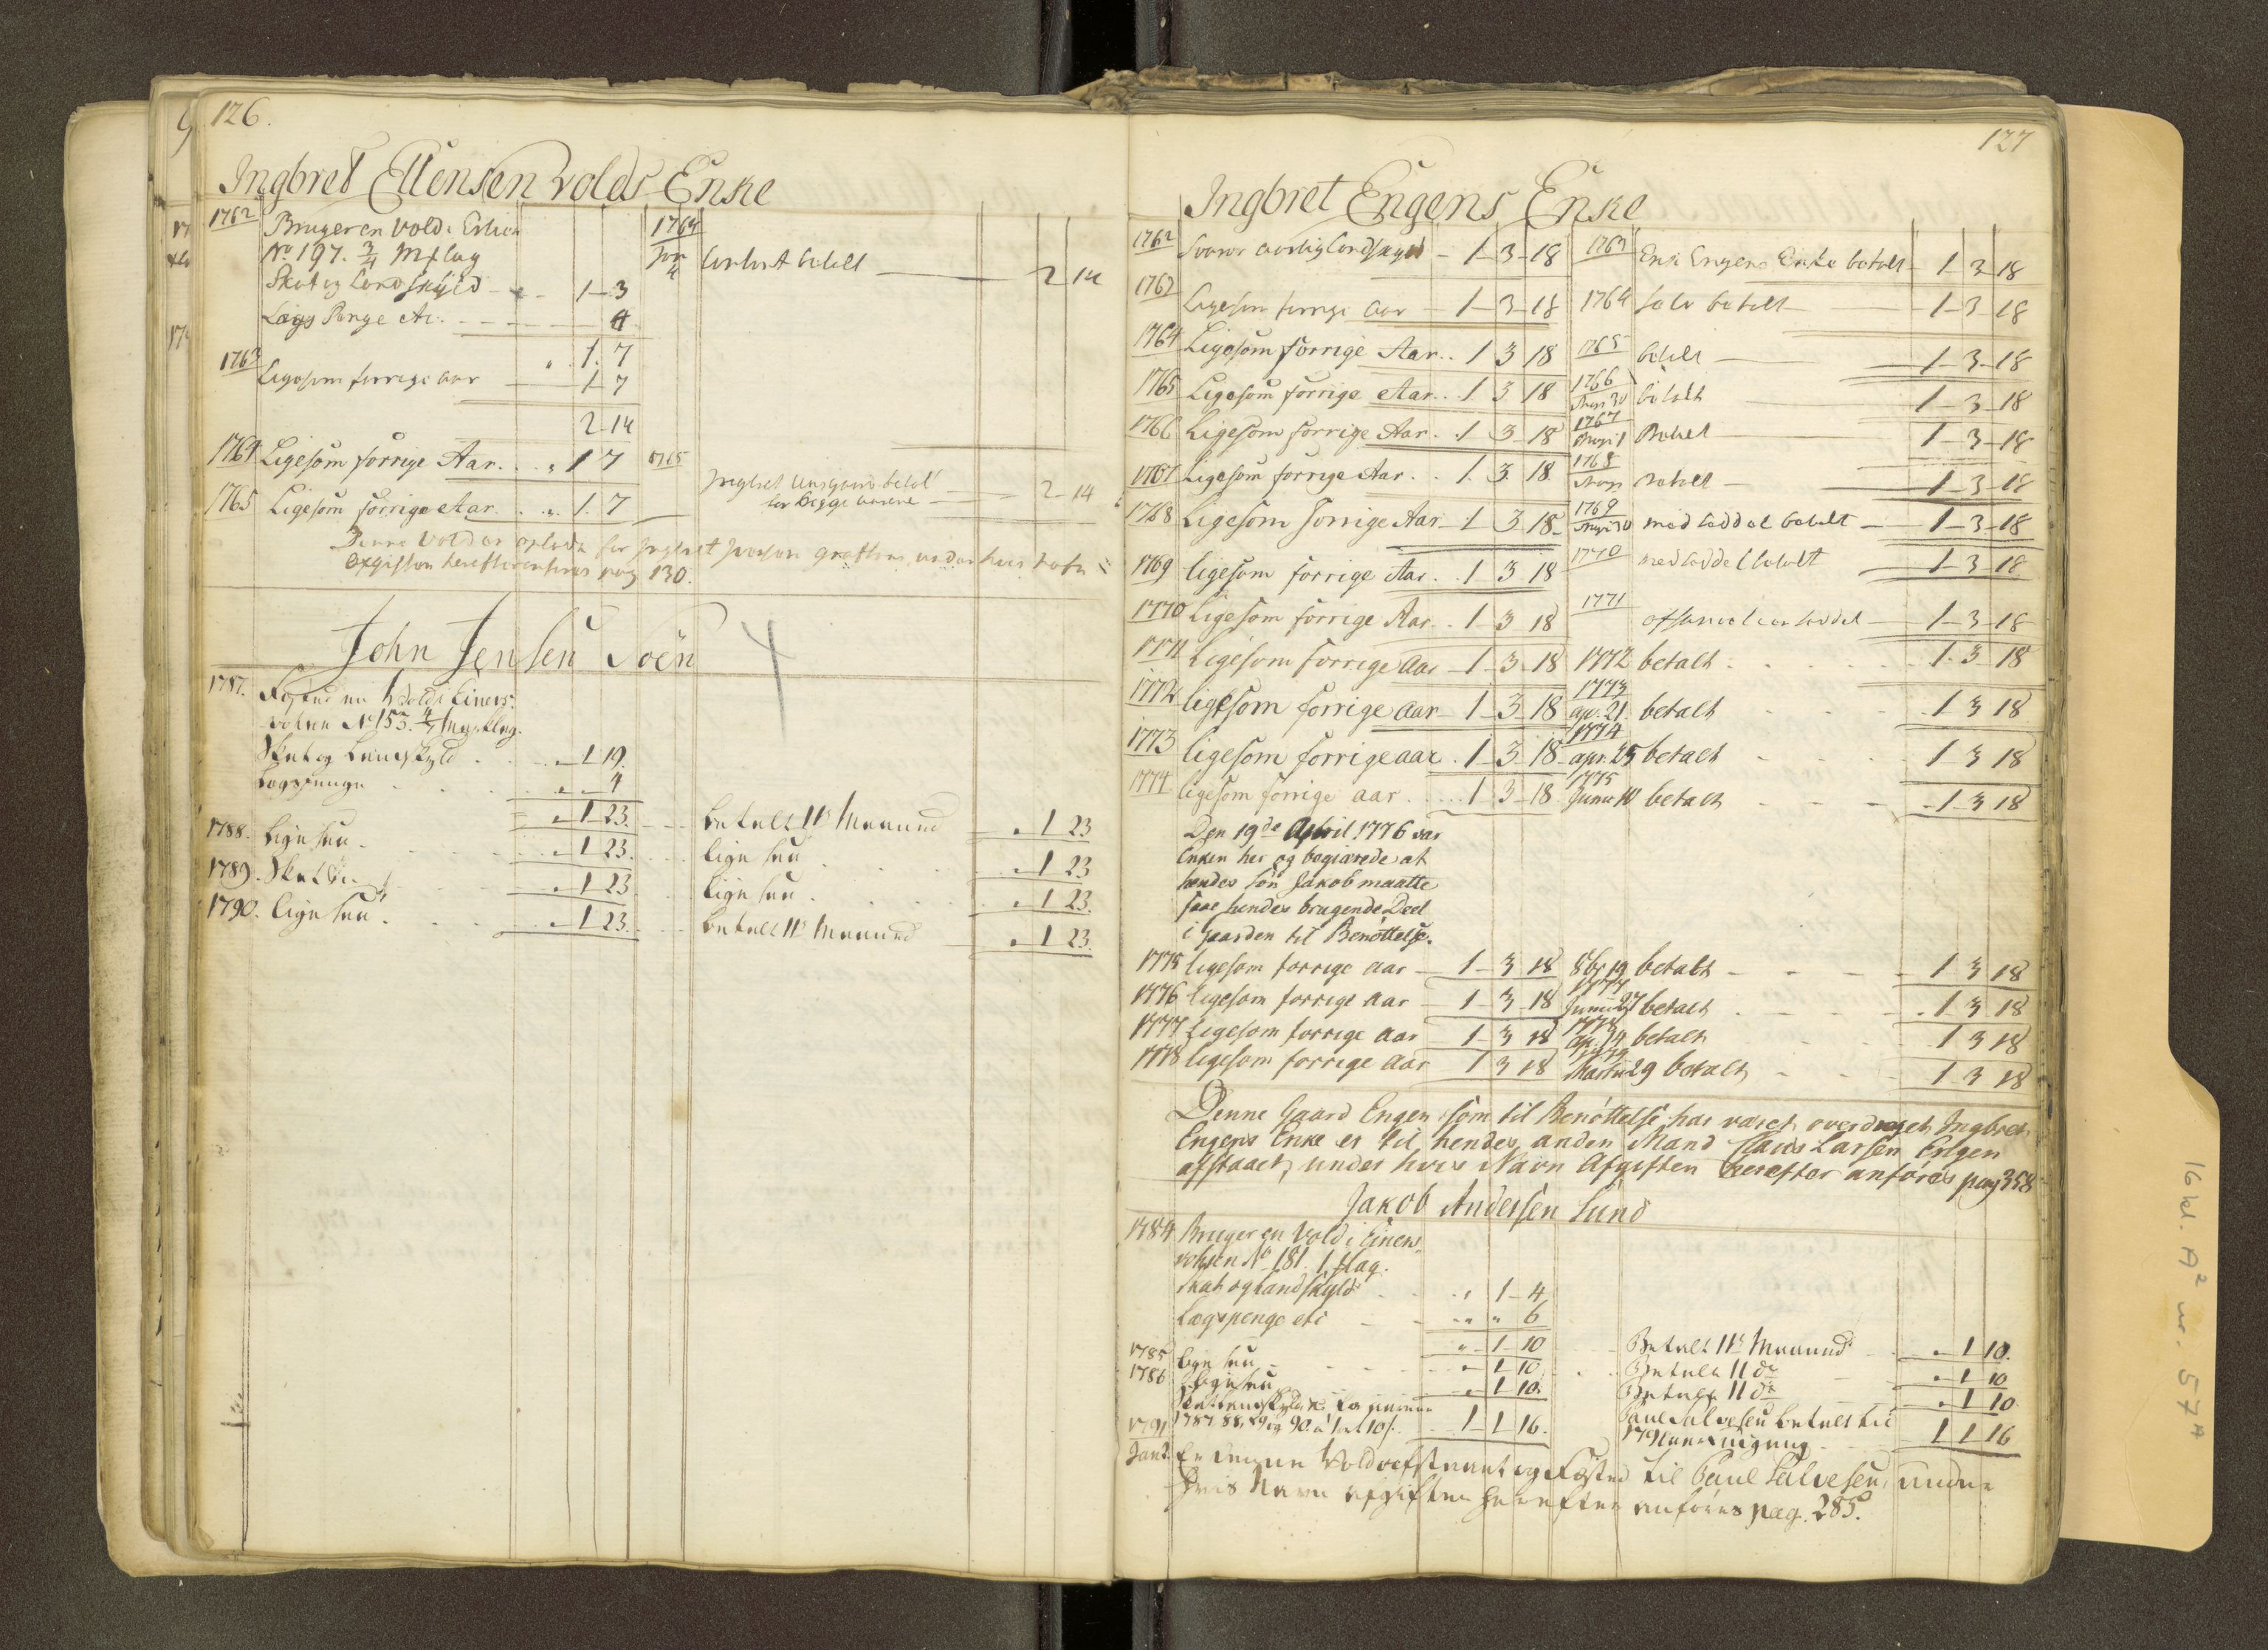 126.
Ingbret Ellensen volds Enke
1762 Bruger en Vold i
No 197. 3/4 Mk lag
Skat og Landskyld 1 3
Lægs Penge etc. 4
" 1. 7
1763 Ligesom forrige aar 1 7
2 14
1764 betalt 2 14
1764 Ligesom forrige Aar. . " 1 7
1765 Ligesom forrige Aar. . ". 1. 7
1765 Ingbret betalt
for begge aarene 2-14
Denne Vold er for Ingbret under hvis Nafn
Afgiften herefter anføres pag 130.
John Jensen Moen
4
1787. Fæsted en Vold i Einers-
vohlen No 153. Marklag.
Skat og Landskyld . . " 1 19.
Lægspenge . . " " 4
" 1 23. betalt 11 Maaned " 1 23
1788. Ligesaa . " 1 23. ligesaa . " 1 23
1789. Skat etc. " 1 23 ligesaa . " 1 23.
1790. ligesaa . " 1 23. betalt 11 Maaned " 1 23.
127
Ingbret Engens Enke
1762 Svarer aarlig Landskyld - 1-3-18 1763 Enke betalt 1 3 18
1763 Ligesom forrige aar - 1-3-18 1764 betalt 1-3-18
1764 Ligesom forrige Aar. . 1 3 18 1765 betalt 1-3-18
1765 Ligesom forrige Aar. . 1 3 18 1766 30 betalt 1-3-18
1766 Ligesom forrige Aar. . 1 3 18 1767 1 Betalt 1-3-18
1767 Ligesom forrige Aar. . 1. 3. 18 1768 betalt 1-3-18
1768 Ligesom forrige Aar - 1 3 18 1769 30 med seddel betalt 1-3-18
1769 ligesom forrige Aar. . 1 3 18 1770 med seddel betalt 1-3-18
1770 Ligesom forrige Aar. . 1 3 18 1771 seddel 1-3-18
1771 Ligesom forrige Aar - 1-3-18 1772 betalt . . . 1. 3-18
1772 ligesom forrige aar - 1-3-18 1773 ap. 21. betalt 1 3 18
1773 ligesom forrige aar . 1-3-18 1774 apr. 25 betalt 1 3 18
1774 ligesom forrige aar . . 1-3-18 1775 Junii 10 betalt 1 3 18
Den 19de April 1776 var
Enken her og begiærede at
hendes søn Jakob maatte
faae hendes brugende Deel
i Gaarden til Benøttelse.
1775 ligesom forrige aar - 1-3 18 8br 19 betalt - - 1 3 18
1776 ligesom forrige aar 1 3 18 1777 Junii 27 betalt . . 1 3 18
1777 ligesom forrige aar 1-3 18 1778 ap. 14 betalt 1 3 18
1778 ligesom forrige aar 1 3 18 1779 Martii 29 betalt - 1 3 18
Denne Gaard Engen som til Benøttelse har været overdraget Ingbret
Engens Enke er til hendes anden Mand Claus Larsen Engen
afstaaet, under hvis Navn Afgiften herefter anføres pag 358
Jakob Andersen Lund
1784 Bruger en Vold i Einers-
vohlen No 181. 1 flag.
skat og Landskyld . . " 1-4
Lægspenge etc " " 6
" 1-10 Betalt 11 Maaned " 1 10.
1785 ligesaa " 1 10 Betalt 11 do " 1 10
1786 ligesaa " 1 10. Betalt 11 do " 1 10
Skat Landskyld etc.
1787 88, 89 og 90. a 1 ort 10 s. 1-1-16. Paul Salvesen betalt til
1791 1 1 16
1791
Jan 2. Er denne Vold afstaaet og Fæsted til Paul Salvesen, under
hvis Navn afgiften herefter anføres pag. 285.
16 kl. A² nr. 57A